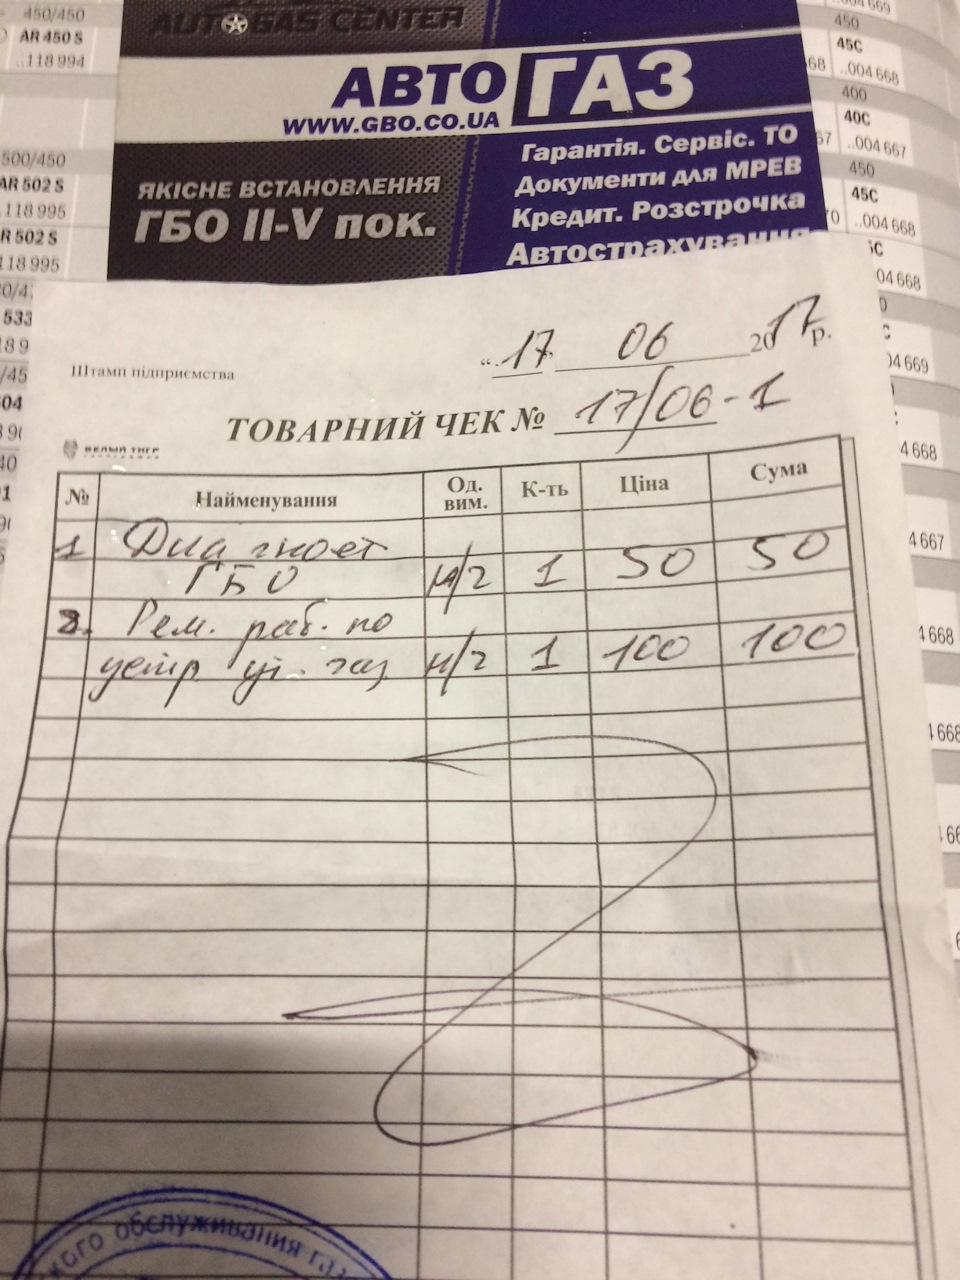 AUTOGAS CENTER
АВТО ГАЗ
WWW.GBO.CO.UA
Гарантія. Сервіс. ТО
Документи для МРЕВ
Кредит. Розстрочка
Автострахування
ЯКІСНЕ ВСТАНОВЛЕННЯ
ГБО II-V пок.
450/450
AR 450 S
..118 994
500/450
AR 502 S
.118 995
R 502 S
118 995
533
450
45C
..004 668
400
40C
..004 667
450
45C
..004 668
04 668
04 669
4 668
4 667
4 668
"17" 06 2017 р.
Штамп підприємства
ТОВАРНИЙ ЧЕК № 17/06-1
БЕЛЫЙ ТИГР
№ Найменування Од. вим. К-ть Ціна Сума
1 Диагност
ГБО н/г 1 50 50
2. Рем. раб. по
устр. ут. газ н/г 1 100 100
кого обслуживания га